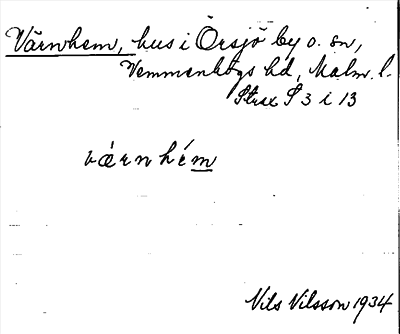 Värnhem, hus i Örsjö by o. sn,
Vemmenhögs hd, Malm. l.
Strax S 3 i 13
værnhém
Nils Nilsson 1934